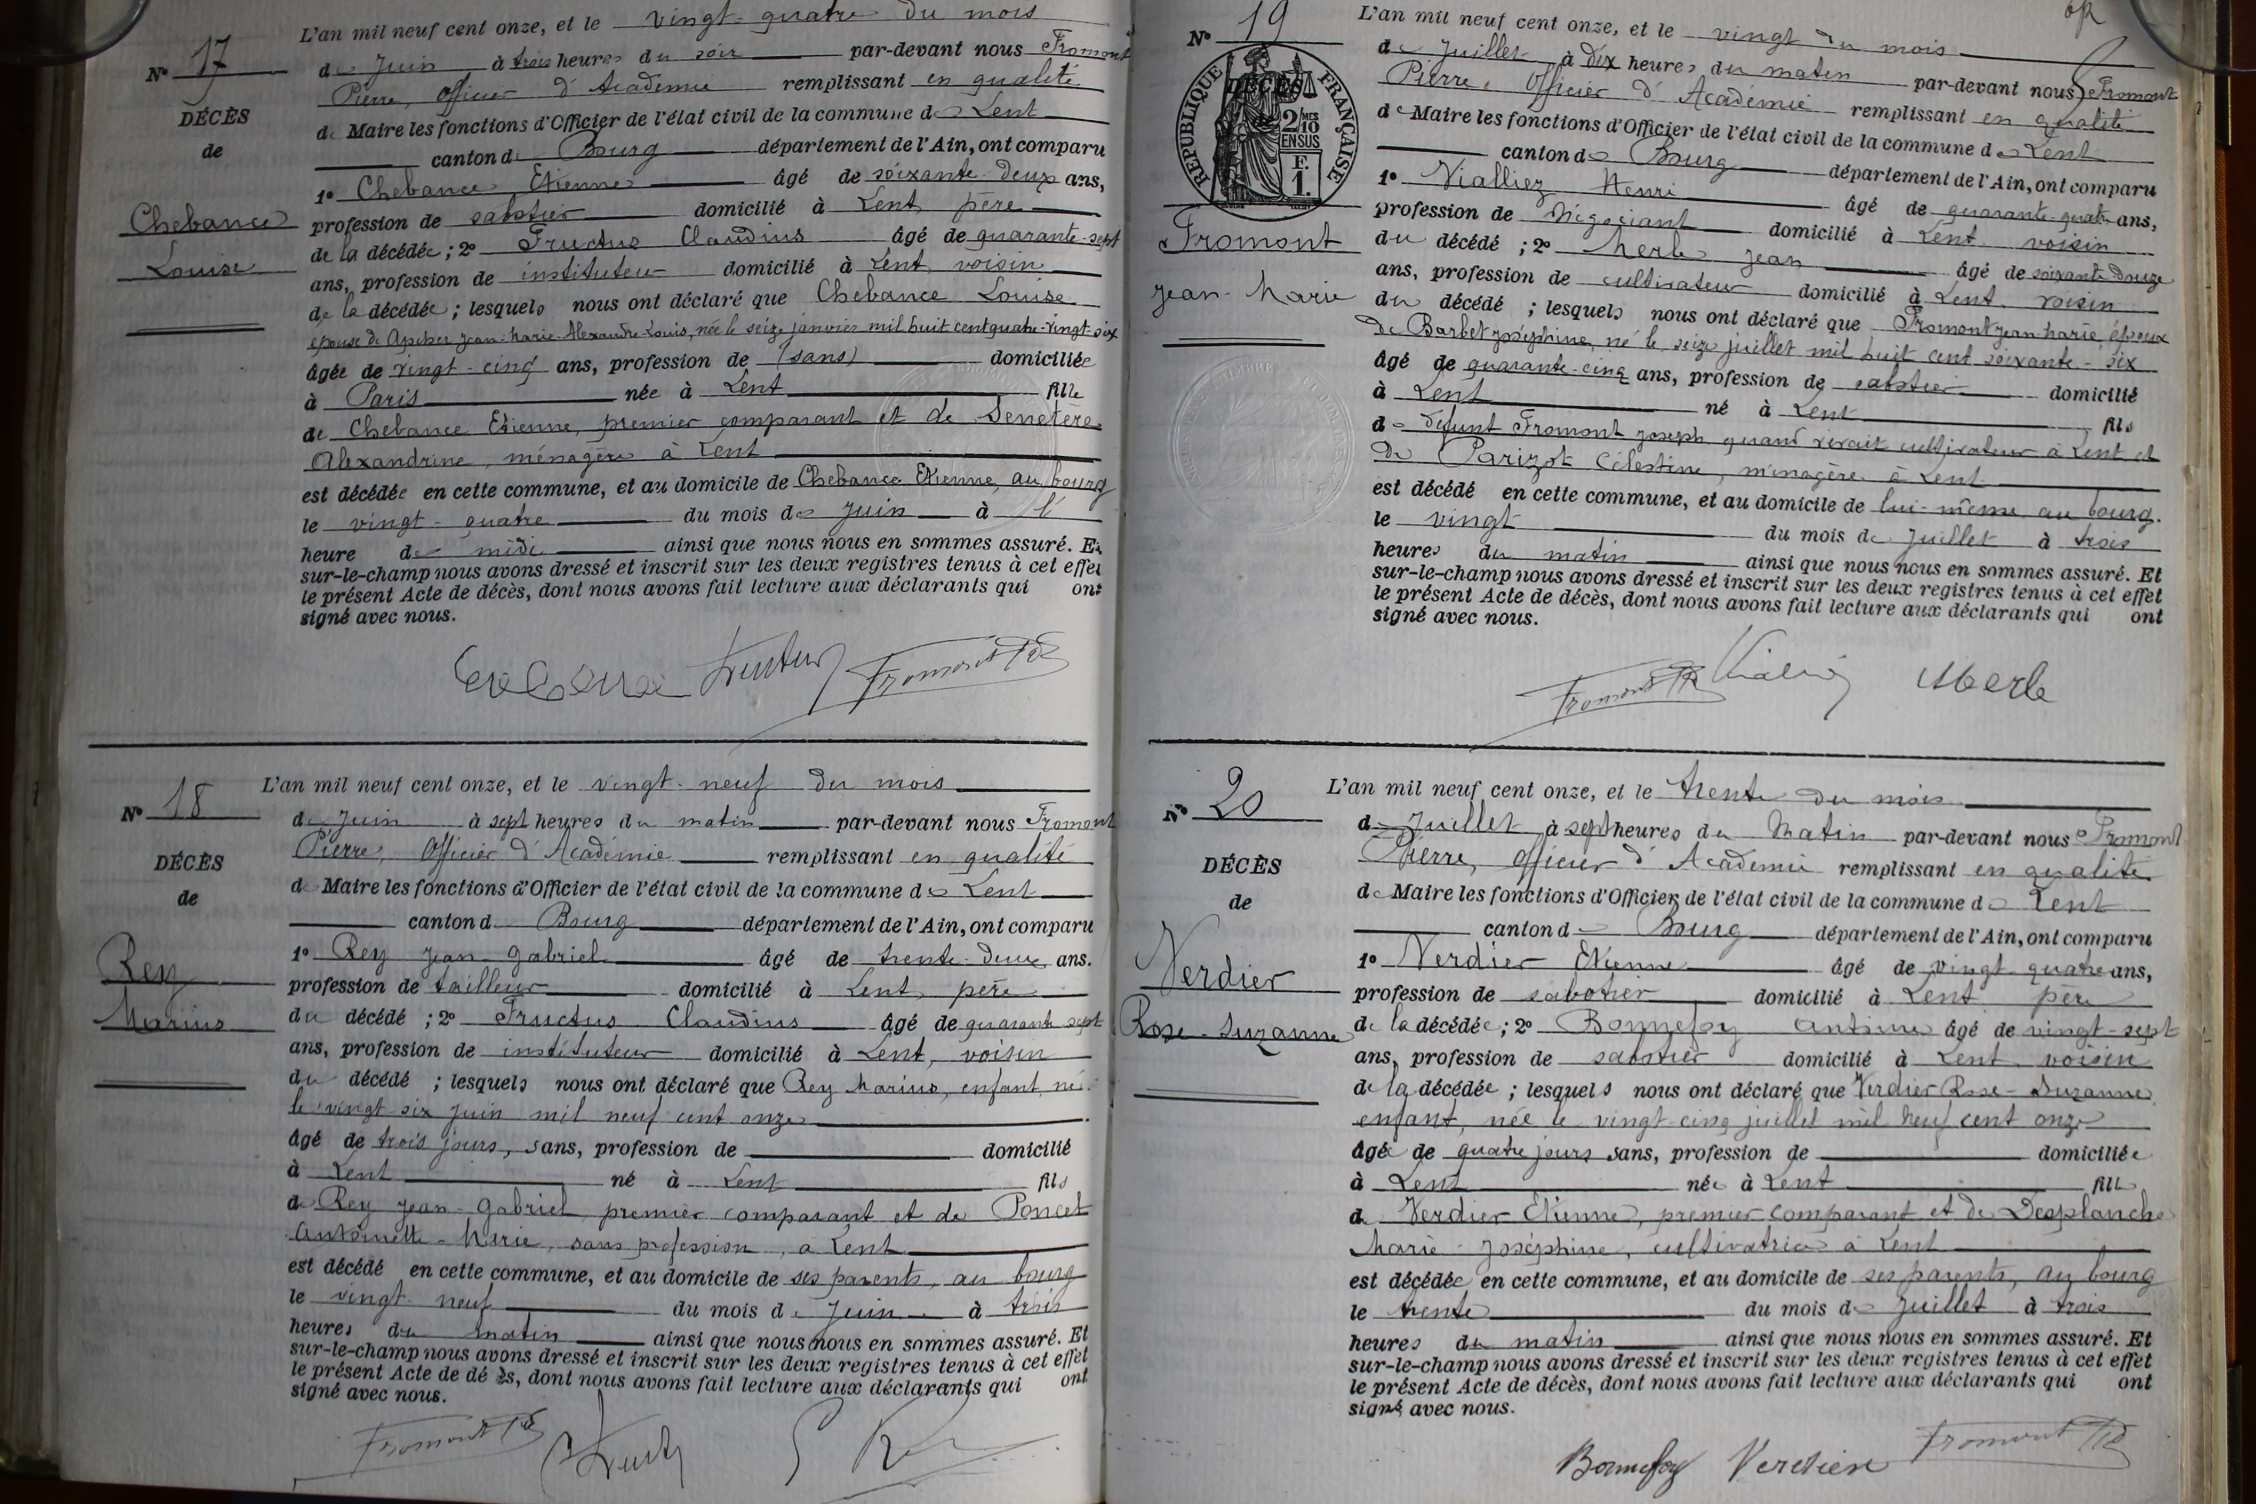 Nº 17
DÉCÈS
de
Chebance
Louise
L'an mil neuf cent onze, et le vingt-quatre du mois
de Juin à trois heures du soir par-devant nous Fromont
Pierre, Officier d'Académie remplissant en qualité
de Maire les fonctions d'Officier de l'état civil de la commune de Lent
canton de Bourg département de l'Ain, ont comparu
1º Chebance Etienne âgé de soixante-deux ans,
profession de sabotier domicilié à Lent, père
de la décédée ; 2º Fructus Claudius âgé de quarante-sept
ans, profession de instituteur domicilié à Lent, voisin
de la décédée ; lesquels nous ont déclaré que Chebance Louise
épouse de Apcher Jean-Marie-Alexandre-Louis, née le seize janvier mil huit cent quatre-vingt-six
âgée de vingt-cinq ans, profession de (sans) domiciliée
à Paris née à Lent fille
de Chebance Etienne, premier comparant et de Senetère
Alexandrine, ménagère à Lent
est décédée en cette commune, et au domicile de Chebance Etienne, au bourg
le vingt-quatre du mois de Juin à l'
heure de midi ainsi que nous nous en sommes assuré. Et
sur-le-champ nous avons dressé et inscrit sur les deux registres tenus à cet effet
le présent Acte de décès, dont nous avons fait lecture aux déclarants qui ont
signé avec nous.
Fructus Fromont Pre
Nº 18
DÉCÈS
de
Rey
Marius
L'an mil neuf cent onze, et le vingt-neuf du mois
de Juin à sept heures du matin par-devant nous Fromont
Pierre, Officier d'Académie remplissant en qualité
de Maire les fonctions d'Officier de l'état civil de la commune de Lent
canton d Bourg département de l'Ain, ont comparu
1º Rey Jean-Gabriel âgé de trente-deux ans.
profession de tailleur domicilié à Lent, père
du décédé ; 2º Fructus Claudius âgé de quarante sept
ans, profession de instituteur domicilié à Lent, voisin
du décédé ; lesquels nous ont déclaré que Rey Marius, enfant, né
le vingt-six juin mil neuf cent onze
âgé de trois jours, sans, profession de domicilié
à Lent né à Lent fils
de Rey Jean-Gabriel premier comparant et de Poncet
Antoinette-Marie, sans profession, à Lent
est décédé en cette commune, et au domicile de ses parents, au bourg
le vingt-neuf du mois de Juin à trois
heures du matin ainsi que nous nous en sommes assuré. Et
sur-le-champ nous avons dressé et inscrit sur les deux registres tenus à cet effet
le présent Acte de décès, dont nous avons fait lecture aux déclarants qui ont
signé avec nous.
Fromont Pre Fructus G Rey
Nº 19
RÉPUBLIQUE FRANÇAISE
DÉCÈS
2/10 MES
EN SUS
F.
1.
Fromont
Jean-Marie
L'an mil neuf cent onze, et le vingt du mois
de Juillet à dix heures du matin par-devant nous Fromont
Pierre, Officier d'Académie remplissant en qualité
de Maire les fonctions d'Officier de l'état civil de la commune de Lent
canton de Bourg département de l'Ain, ont comparu
1º Vialliez Henri âgé de quarante-quatre ans,
profession de Négociant domicilié à Lent voisin
du décédé ; 2º Merle Jean âgé de soixante-douze
ans, profession de cultivateur domicilié à Lent voisin
du décédé ; lesquels nous ont déclaré que Fromont Jean-Marie, époux
de Barbet Joséphine, né le seize juillet mil huit cent soixante-six
âgé de quarante-cinq ans, profession de sabotier domicilié
à Lent né à Lent fils
de défunt Fromont Joseph quand vivait cultivateur à Lent et
de Parizot Célestine, ménagère à Lent
est décédé en cette commune, et au domicile de lui-même au bourg.
le vingt du mois de Juillet à trois
heures du matin ainsi que nous nous en sommes assuré. Et
sur-le-champ nous avons dressé et inscrit sur les deux registres tenus à cet effet
le présent Acte de décès, dont nous avons fait lecture aux déclarants qui ont
signé avec nous.
Fromont Pre Merle
Nº 20
DÉCÈS
de
Verdier
Rose-Suzanne
L'an mil neuf cent onze, et le trente du mois
de Juillet à sept heures du Matin par-devant nous Fromont
Pierre, Officier d'Académie remplissant en qualité
de Maire les fonctions d'Officier de l'état civil de la commune de Lent
canton de Bourg département de l'Ain, ont comparu
1º Verdier Etienne âgé de vingt-quatre ans,
profession de sabotier domicilié à Lent père
de la décédée ; 2º Bonnefoy Antoine âgé de vingt-sept
ans, profession de sabotier domicilié à Lent voisin
de la décédée ; lesquels nous ont déclaré que Verdier Rose-Suzanne
enfant, née le vingt-cinq juillet mil neuf cent onze
âgée de quatre jours sans, profession de domiciliée
à Lent née à Lent fille
de Verdier Etienne, premier comparant et de Desplanche
Marie-Joséphine, cultivatrice à Lent
est décédée en cette commune, et au domicile de ses parents, au bourg
le trente du mois de Juillet à trois
heures du matin ainsi que nous nous en sommes assuré. Et
sur-le-champ nous avons dressé et inscrit sur les deux registres tenus à cet effet
le présent Acte de décès, dont nous avons fait lecture aux déclarants qui ont
signé avec nous.
Bonnefoy Verdier Fromont Pre